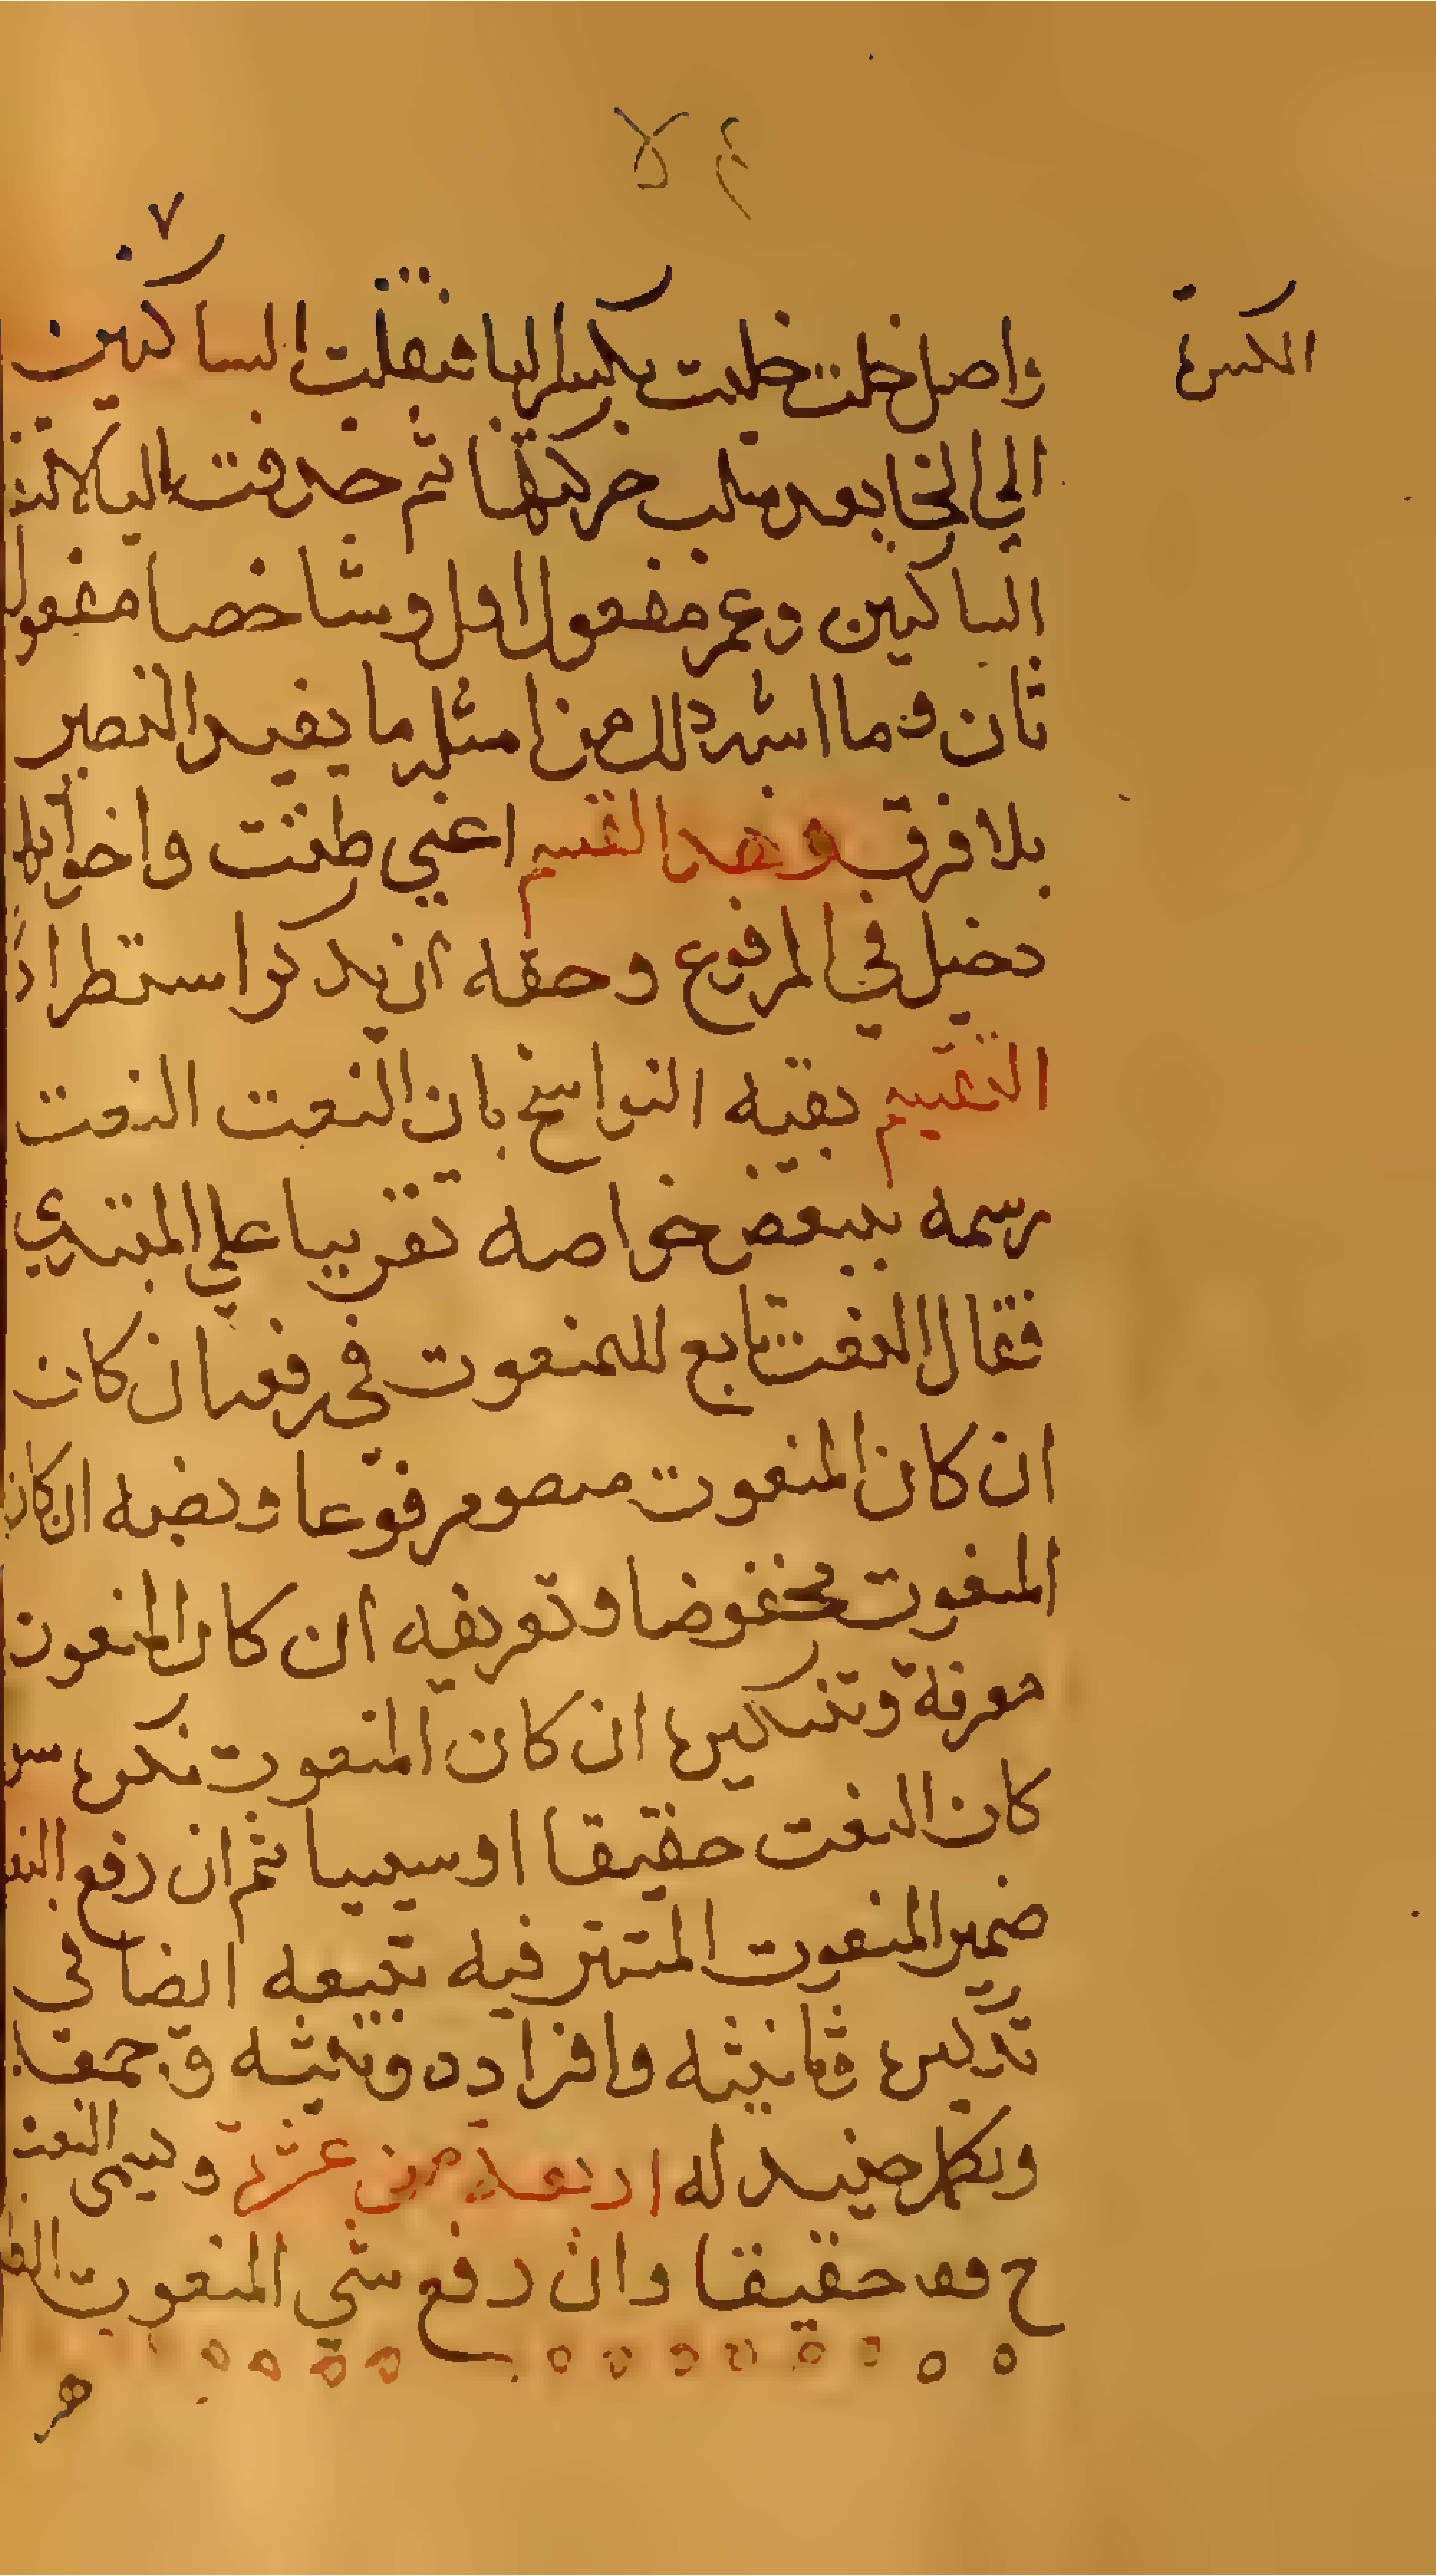 ٤ لا
٧
الكسرة
واصل خلت خليت بكسر اليا فنقلت الساكنين
الي الخا بعد سلب حركتها ثم حذفت اليا لالتقا
الساكنين وعمر مفعول اول وشاخصا مفعول
ثان وما اشبه ذلك من امثله ما يفيد النصب
بلا فرق وهذا القسم اعني ظننت واخواتها
دخيل في المرفوع وحقه ان يذكر استطرادا
التتميم بقيه النواسخ بان النعت النعت
رسمه ببعض خواصه تقريبا علي المبتدي
فقال النعت تابع للمنعوت في رفعه ان كان
ان كان المنعوت منصوم مرفوعا ونصبه ان كان
المنعوت مخفوضا وتعريفه ان كان المنعوت
معرفة وتنكيره ان كان المنعوت نكره سو
كان النعت حقيقا او سببيا ثم ان رفع النعت
ضمير المنعوت المستتر فيه تبعه ايضا في
تذكيره وتانيثه وافراده وتثنيثه وجمعه
وبكل حينيد له اربعة من عشرة ويسمى النعت
ح حقيقا وان رفع شي المنعوت